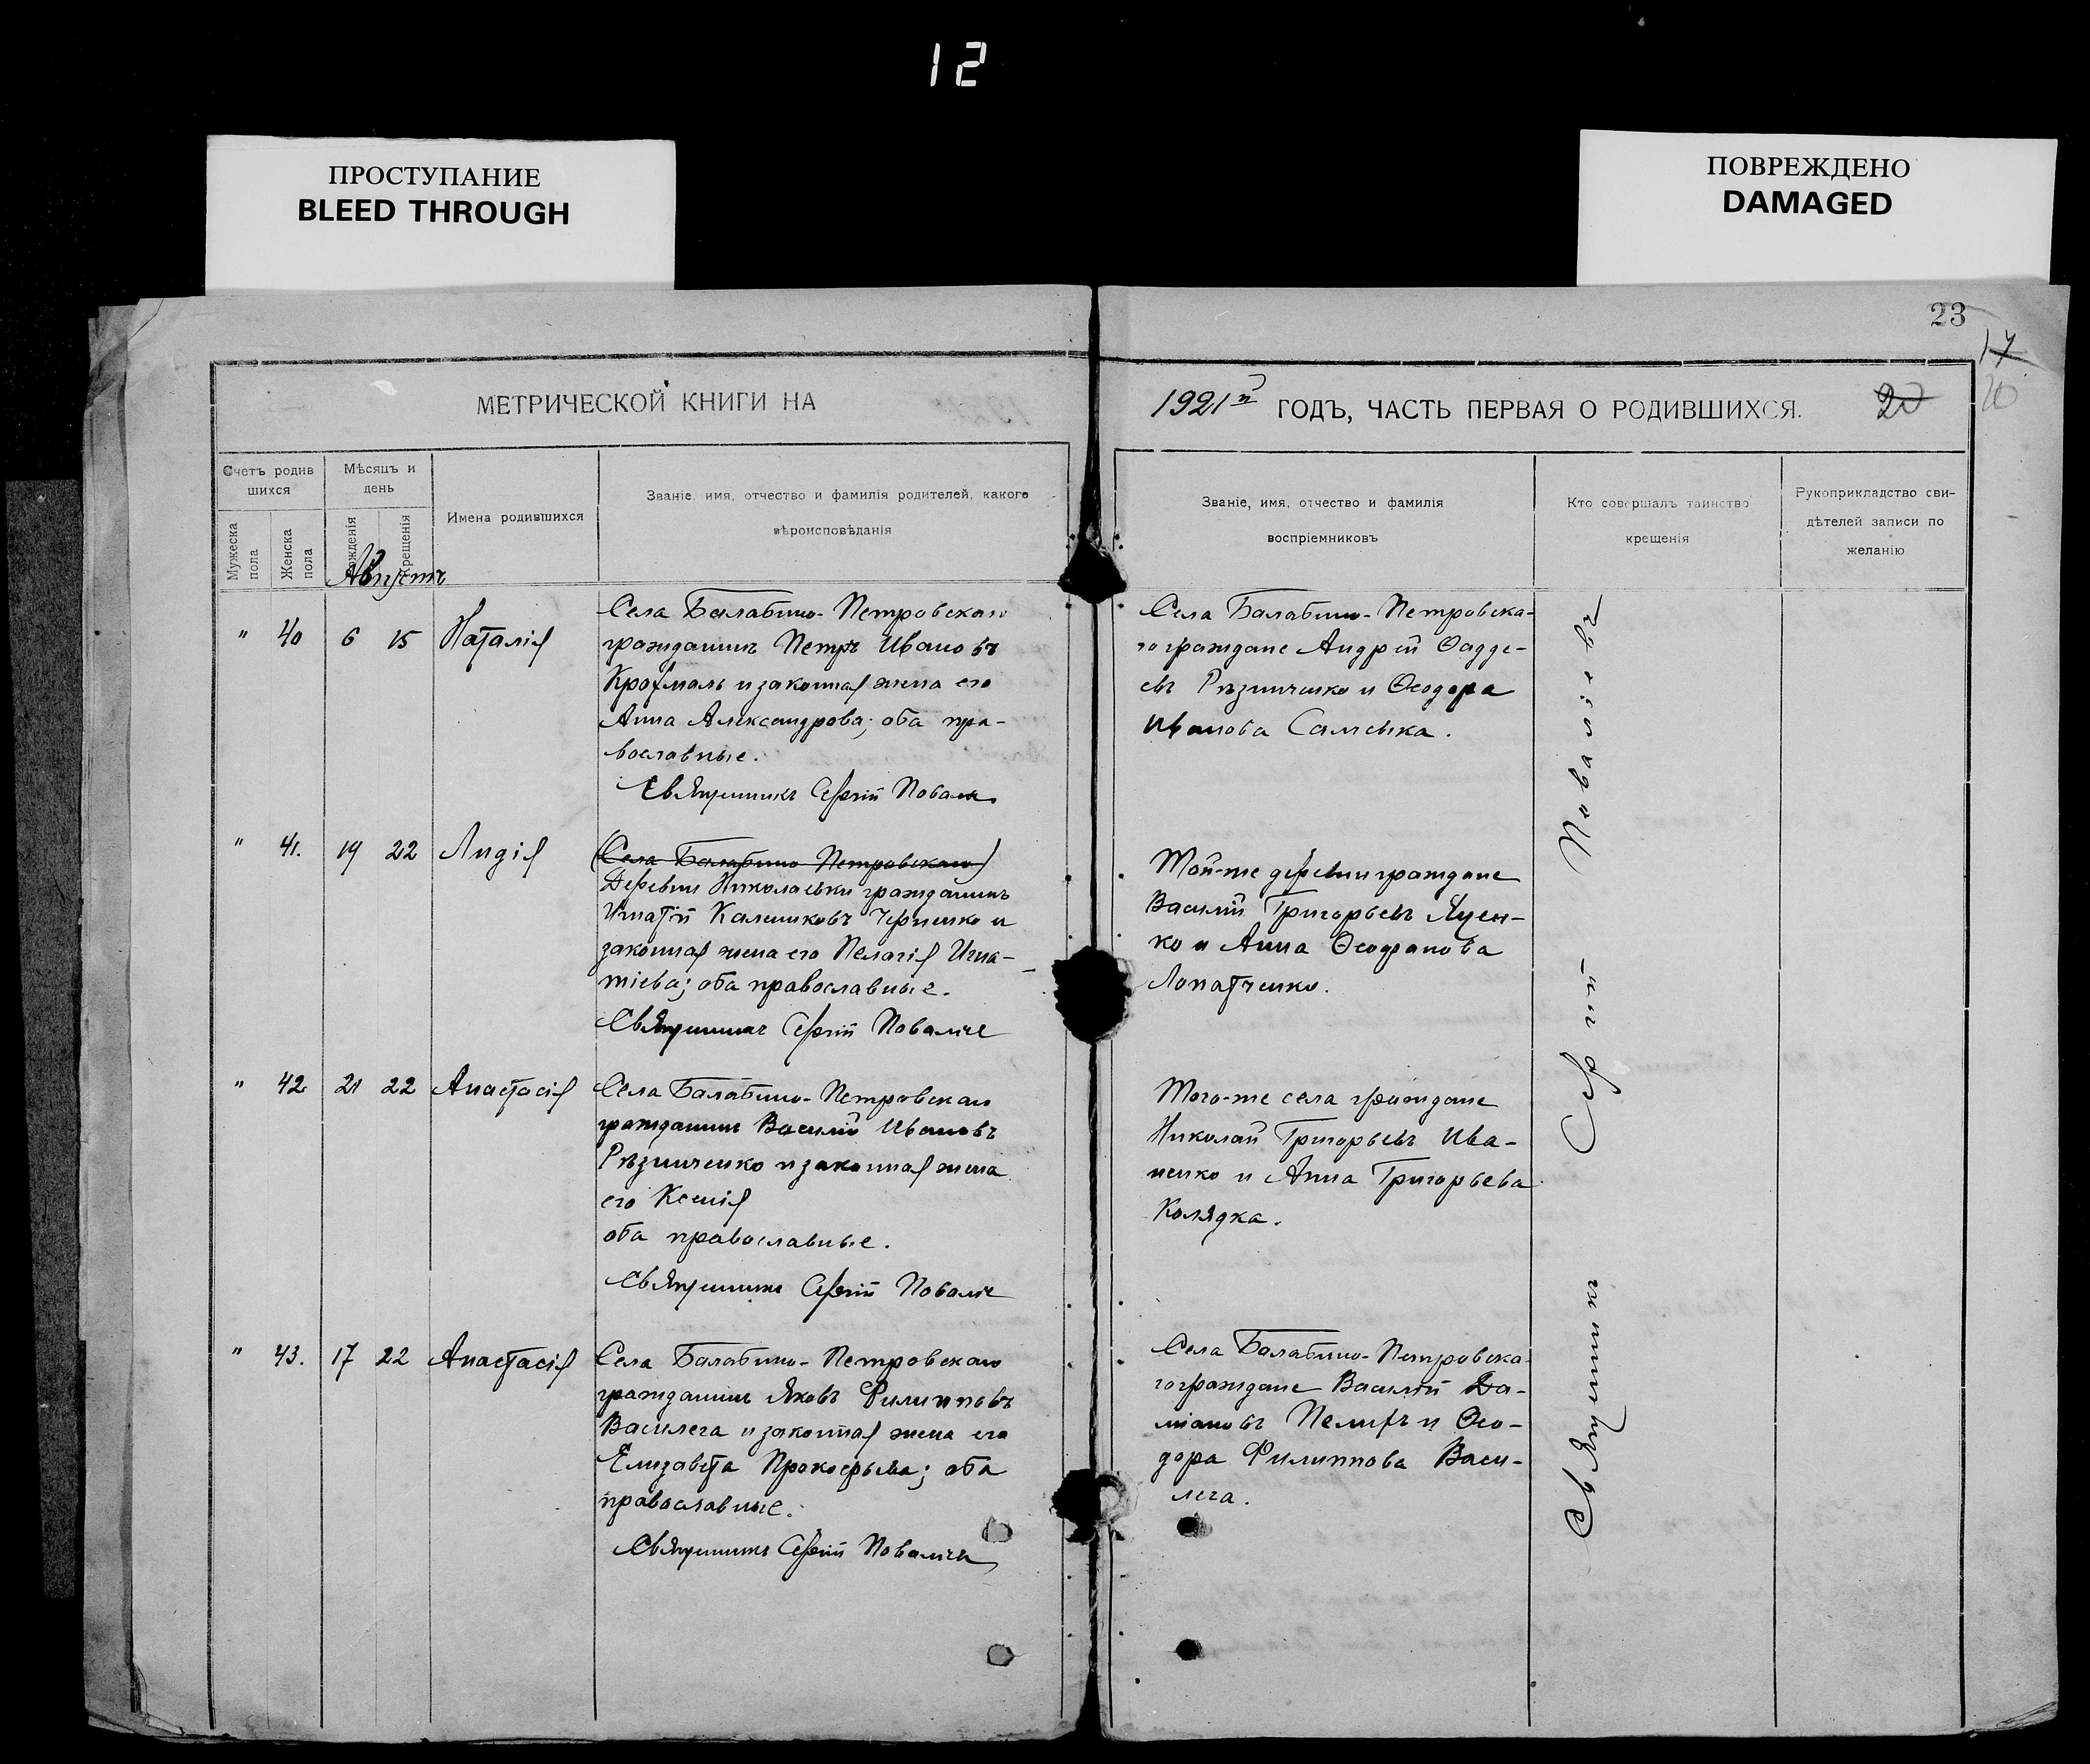 12
ПРОСТУПАНИЕ
BLEED THROUGH
ПОВРЕЖДЕНО
DAMAGED
23
17
20
МЕТРИЧЕСКОЙ КНИГИ НА
1921й ГОДЪ, ЧАСТЬ ПЕРВАЯ О РОДИВШИХСЯ.
20
Счетъ родив
шихся
Мужеска
пола
Женска
пола
Мѣсяцъ и
день
рожденія
крещенія
Имена родившихся
Званіе, имя, отчество и фамилія родителей, какого
вѣроисповѣданія
Званіе, имя, отчество и фамилія
воспріемниковъ
Кто совершалъ таинство
крещенія
Рукоприкладство сви-
дѣтелей записи по
желанію
Августъ
" 40 6 15 Наталія
Села Балабино-Петровскаго
гражданинъ Петръ Ивановъ
Крохмаль и законная жена его
Анна Александрова; оба пра-
вославные.
Священникъ Сергій
Села Балабино-Петровска-
го граждане Андрей Фадде-
евъ Рѣзниченко и Ѳеодора
Иванова
" 41. 19 22 Лидія
(Села Балабино Петровскаго)
Деревни Николаевки гражданинъ
Игнатій Калинниковъ Черненко и
законная жена его Пелагія Игна-
тіева; оба православные.
Священникъ Сергій
Той-же деревни граждане
Василій Григорьевъ Яцен-
ко и Анна Ѳеофанова
Лопатченко.
" 42 21 22 Анастасія
Села Балабино-Петровскаго
гражданинъ Василій Ивановъ
Рѣзниченко и законная жена
его Ксенія
оба православные.
Священникъ Сергій
Того-же села граждане
Николай Григорьевъ Ива-
ненко и Анна Григорьева
Колядка.
" 43. 17 22 Анастасія
Села Балабино-Петровскаго
гражданинъ Яковъ Филипповъ
Василега и законная жена его
Елизавета Прокофьева; оба
православные.
Священникъ Сергій
Села Балабино-Петровска-
го граждане Василій Да-
міановъ и Ѳео-
дора Филиппова Васи-
лега.
Священникъ Сергій